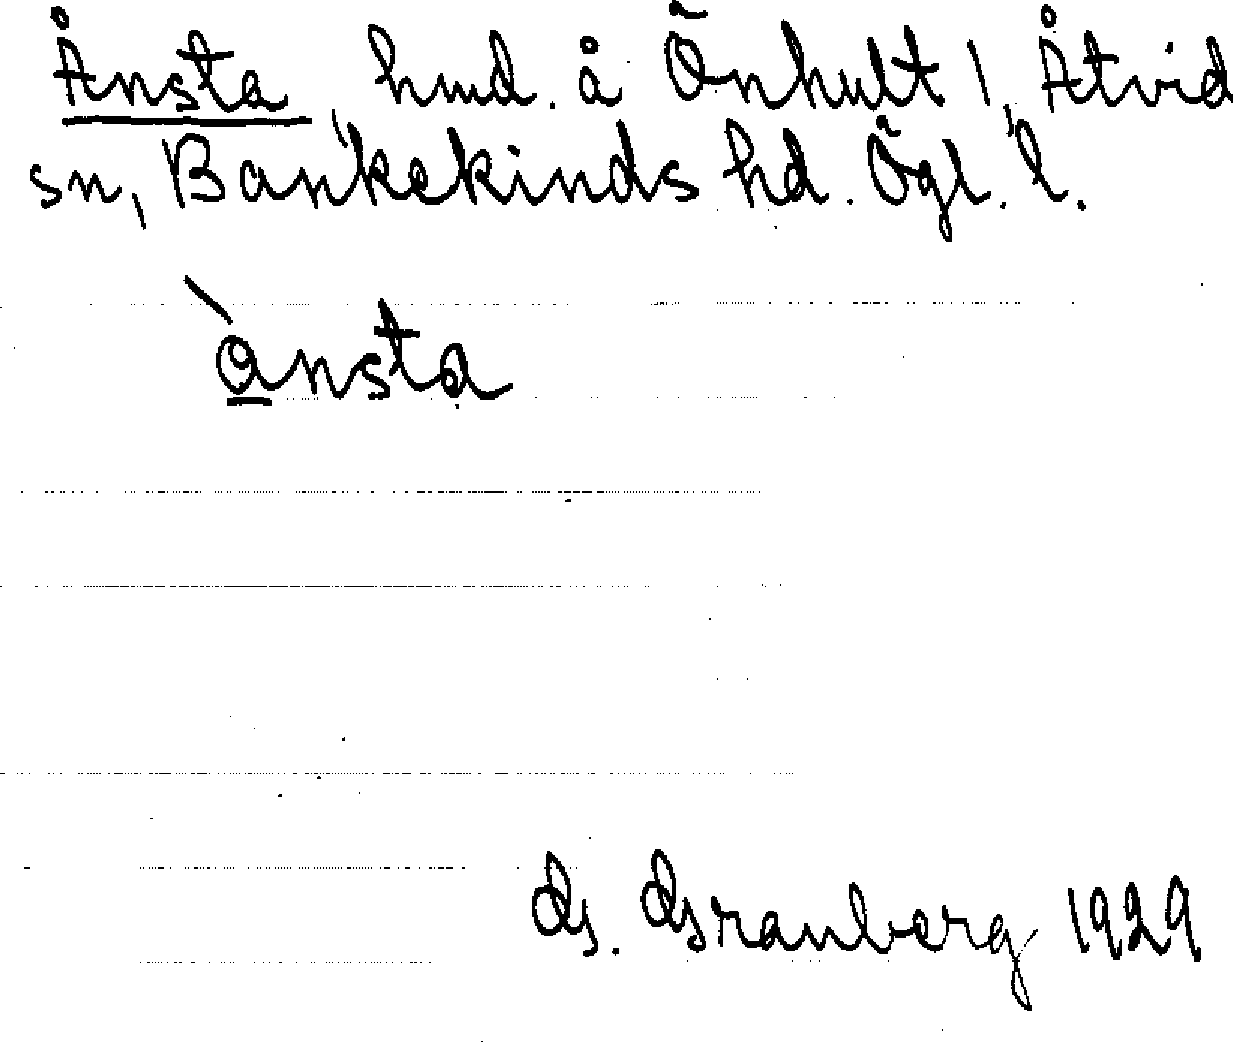 Ånsta, hmd. å Önhult 1, Åtvid
sn, Bankekinds hd. Ögl. l.
ànsta
G. Granberg 1929